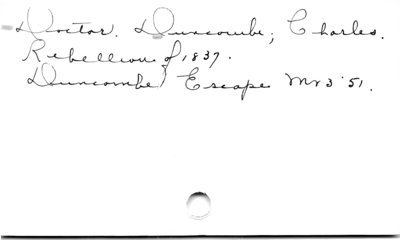 Doctor. Duncombe, Charles.
Rebellion of 1837.
Duncombe Escape Mr 3 '51.